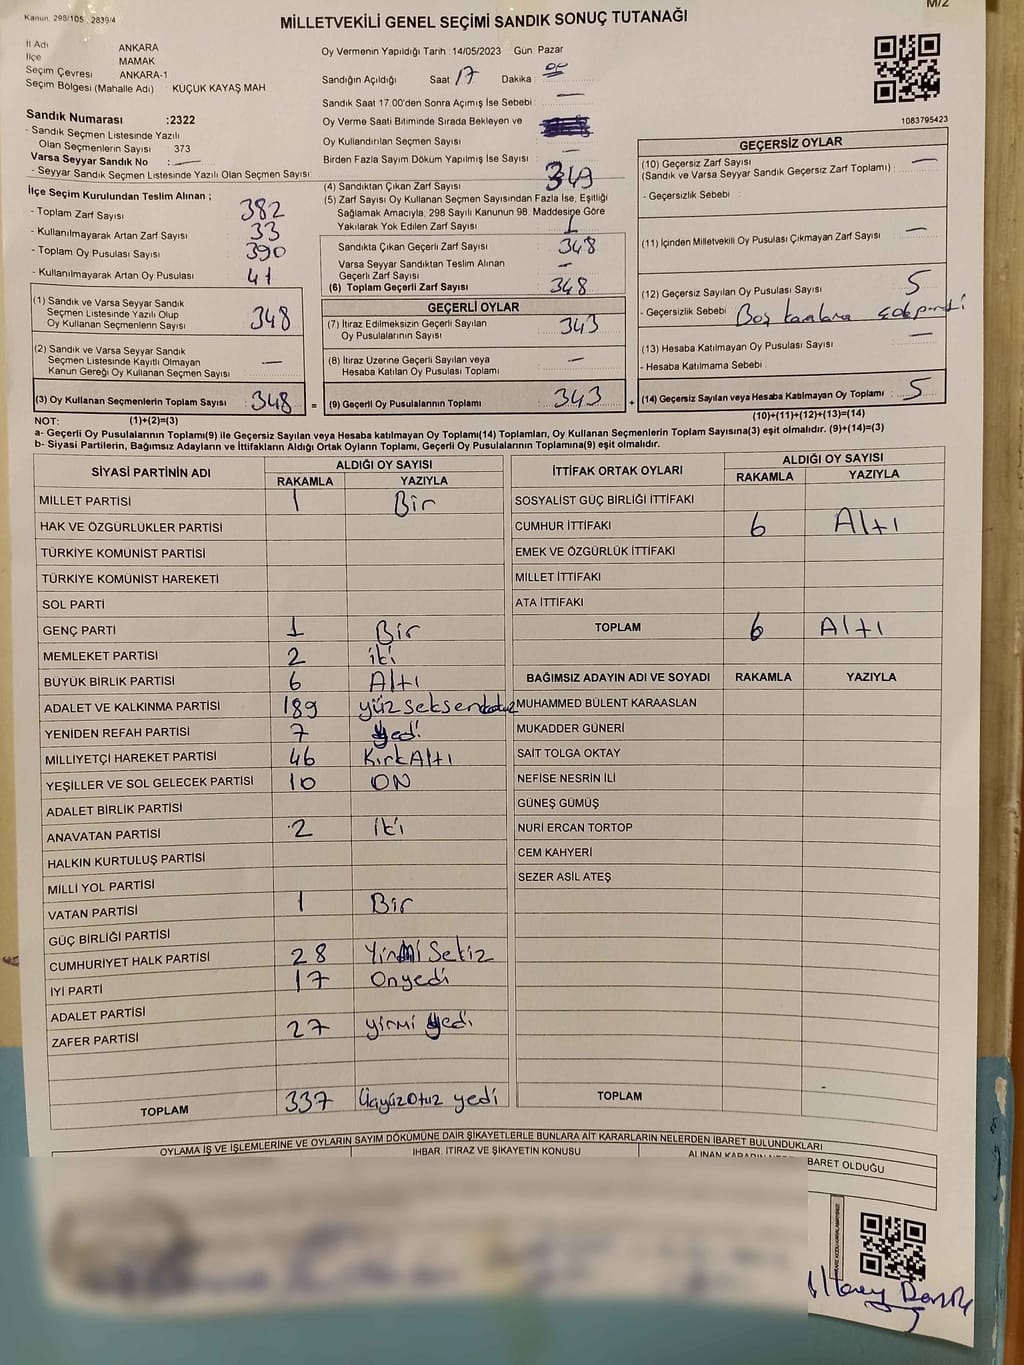 Kanun. 298/105 , 2839/4
M/2
MİLLETVEKİLİ GENEL SEÇİMİ SANDIK SONUÇ TUTANAĞI
İl Adı ANKARA
İlçe MAMAK
Seçim Çevresi ANKARA-1
Seçim Bölgesi (Mahalle Adı) KÜÇÜK KAYAŞ MAH
Sandık Numarası :2322
- Sandık Seçmen Listesinde Yazılı
Olan Seçmenlerin Sayısı 373
Varsa Seyyar Sandık No : —
- Seyyar Sandık Seçmen Listesinde Yazılı Olan Seçmen Sayısı:
İlçe Seçim Kurulundan Teslim Alınan ;
- Toplam Zarf Sayısı 382
- Kullanılmayarak Artan Zarf Sayısı 33
- Toplam Oy Pusulası Sayısı 390
- Kullanılmayarak Artan Oy Pusulası 41
(1) Sandık ve Varsa Seyyar Sandık
Seçmen Listesinde Yazılı Olup
Oy Kullanan Seçmenlerin Sayısı 348
(2) Sandık ve Varsa Seyyar Sandık
Seçmen Listesinde Kayıtlı Olmayan
Kanun Gereği Oy Kullanan Seçmen Sayısı : —
(3) Oy Kullanan Seçmenlerin Toplam Sayısı 348 =
Oy Vermenin Yapıldığı Tarih :14/05/2023 Gün: Pazar
Sandığın Açıldığı Saat: 17 Dakika :
Sandık Saat 17.00'den Sonra Açımış İse Sebebi : —
Oy Verme Saati Bitiminde Sırada Bekleyen ve
Oy Kullandırılan Seçmen Sayısı: —
Birden Fazla Sayım Döküm Yapılmış İse Sayısı
(4) Sandıktan Çıkan Zarf Sayısı 349
(5) Zarf Sayısı Oy Kullanan Seçmen Sayısından Fazla İse, Eşitliği
Sağlamak Amacıyla, 298 Sayılı Kanunun 98. Maddesine Göre
Yakılarak Yok Edilen Zarf Sayısı : 1
Sandıkta Çıkan Geçerli Zarf Sayısı 348
Varsa Seyyar Sandıktan Teslim Alınan
Geçerli Zarf Sayısı —
(6) Toplam Geçerli Zarf Sayısı 348
GEÇERLİ OYLAR
(7) İtiraz Edilmeksizin Geçerli Sayılan
Oy Pusulalarının Sayısı 343
(8) İtiraz Üzerine Geçerli Sayılan veya
Hesaba Katılan Oy Pusulası Toplamı —
(9) Geçerli Oy Pusulalarının Toplamı 343 +
1083795423
GEÇERSİZ OYLAR
(10) Geçersiz Zarf Sayısı —
(Sandık ve Varsa Seyyar Sandık Geçersiz Zarf Toplamı) :
- Geçersizlik Sebebi :
(11) İçinden Milletvekili Oy Pusulası Çıkmayan Zarf Sayısı —
(12) Geçersiz Sayılan Oy Pusulası Sayısı 5
- Geçersizlik Sebebi Boş
(13) Hesaba Katılmayan Oy Pusulası Sayısı —
- Hesaba Katılmama Sebebi :
(14) Geçersiz Sayılan veya Hesaba Katılmayan Oy Toplamı 5
NOT: (1)+(2)=(3) (10)+(11)+(12)+(13)=(14)
a- Geçerli Oy Pusulalarının Toplamı(9) ile Geçersiz Sayılan veya Hesaba katılmayan Oy Toplamı(14) Toplamları, Oy Kullanan Seçmenlerin Toplam Sayısına(3) eşit olmalıdır. (9)+(14)=(3)
b- Siyasi Partilerin, Bağımsız Adayların ve İttifakların Aldığı Oyların Toplamı, Geçerli Oy Pusulalarının Toplamına(9) eşit olmalıdır.
SİYASİ PARTİNİN ADI ALDIĞI OY SAYISI
RAKAMLA YAZIYLA
MİLLET PARTİSİ 1 Bir
HAK VE ÖZGÜRLÜKLER PARTİSİ
TÜRKİYE KOMÜNİST PARTİSİ
TÜRKİYE KOMÜNİST HAREKETİ
SOL PARTİ
GENÇ PARTİ 1 Bir
MEMLEKET PARTİSİ 2 iki
BÜYÜK BİRLİK PARTİSİ 6 Altı
ADALET VE KALKINMA PARTİSİ 189 yüzseksendokuz
YENİDEN REFAH PARTİSİ 7 yedi
MİLLİYETÇİ HAREKET PARTİSİ 46 KırkAltı
YEŞİLLER VE SOL GELECEK PARTİSİ 10 ON
ADALET BİRLİK PARTİSİ
ANAVATAN PARTİSİ 2 iki
HALKIN KURTULUŞ PARTİSİ
MİLLİ YOL PARTİSİ
VATAN PARTİSİ 1 Bir
GÜÇ BİRLİĞİ PARTİSİ
CUMHURİYET HALK PARTİSİ 28 Yirmi Sekiz
İYİ PARTİ 17 Onyedi
ADALET PARTİSİ
ZAFER PARTİSİ 27 yirmi yedi
TOPLAM 337 Üçyüzotuz yedi
İTTİFAK ORTAK OYLARI ALDIĞI OY SAYISI
RAKAMLA YAZIYLA
SOSYALİST GÜÇ BİRLİĞİ İTTİFAKI
CUMHUR İTTİFAKI 6 Altı
EMEK VE ÖZGÜRLÜK İTTİFAKI
MİLLET İTTİFAKI
ATA İTTİFAKI
TOPLAM 6 Altı
BAĞIMSIZ ADAYIN ADI VE SOYADI RAKAMLA YAZIYLA
MUHAMMED BÜLENT KARAASLAN
MUKADDER GÜNERİ
SAİT TOLGA OKTAY
NEFİSE NESRİN İLİ
GÜNEŞ GÜMÜŞ
NURİ ERCAN TORTOP
CEM KAHYERİ
SEZER ASİL ATEŞ
TOPLAM
OYLAMA İŞ VE İŞLEMLERİNE VE OYLARIN SAYIM DÖKÜMÜNE DAİR ŞİKAYETLERLE BUNLARA AİT KARARLARIN NELERDEN İBARET BULUNDUKLARI
İHBAR, İTİRAZ VE ŞİKAYETİN KONUSU
ALINAN KARARIN NEDEN İBARET OLDUĞU